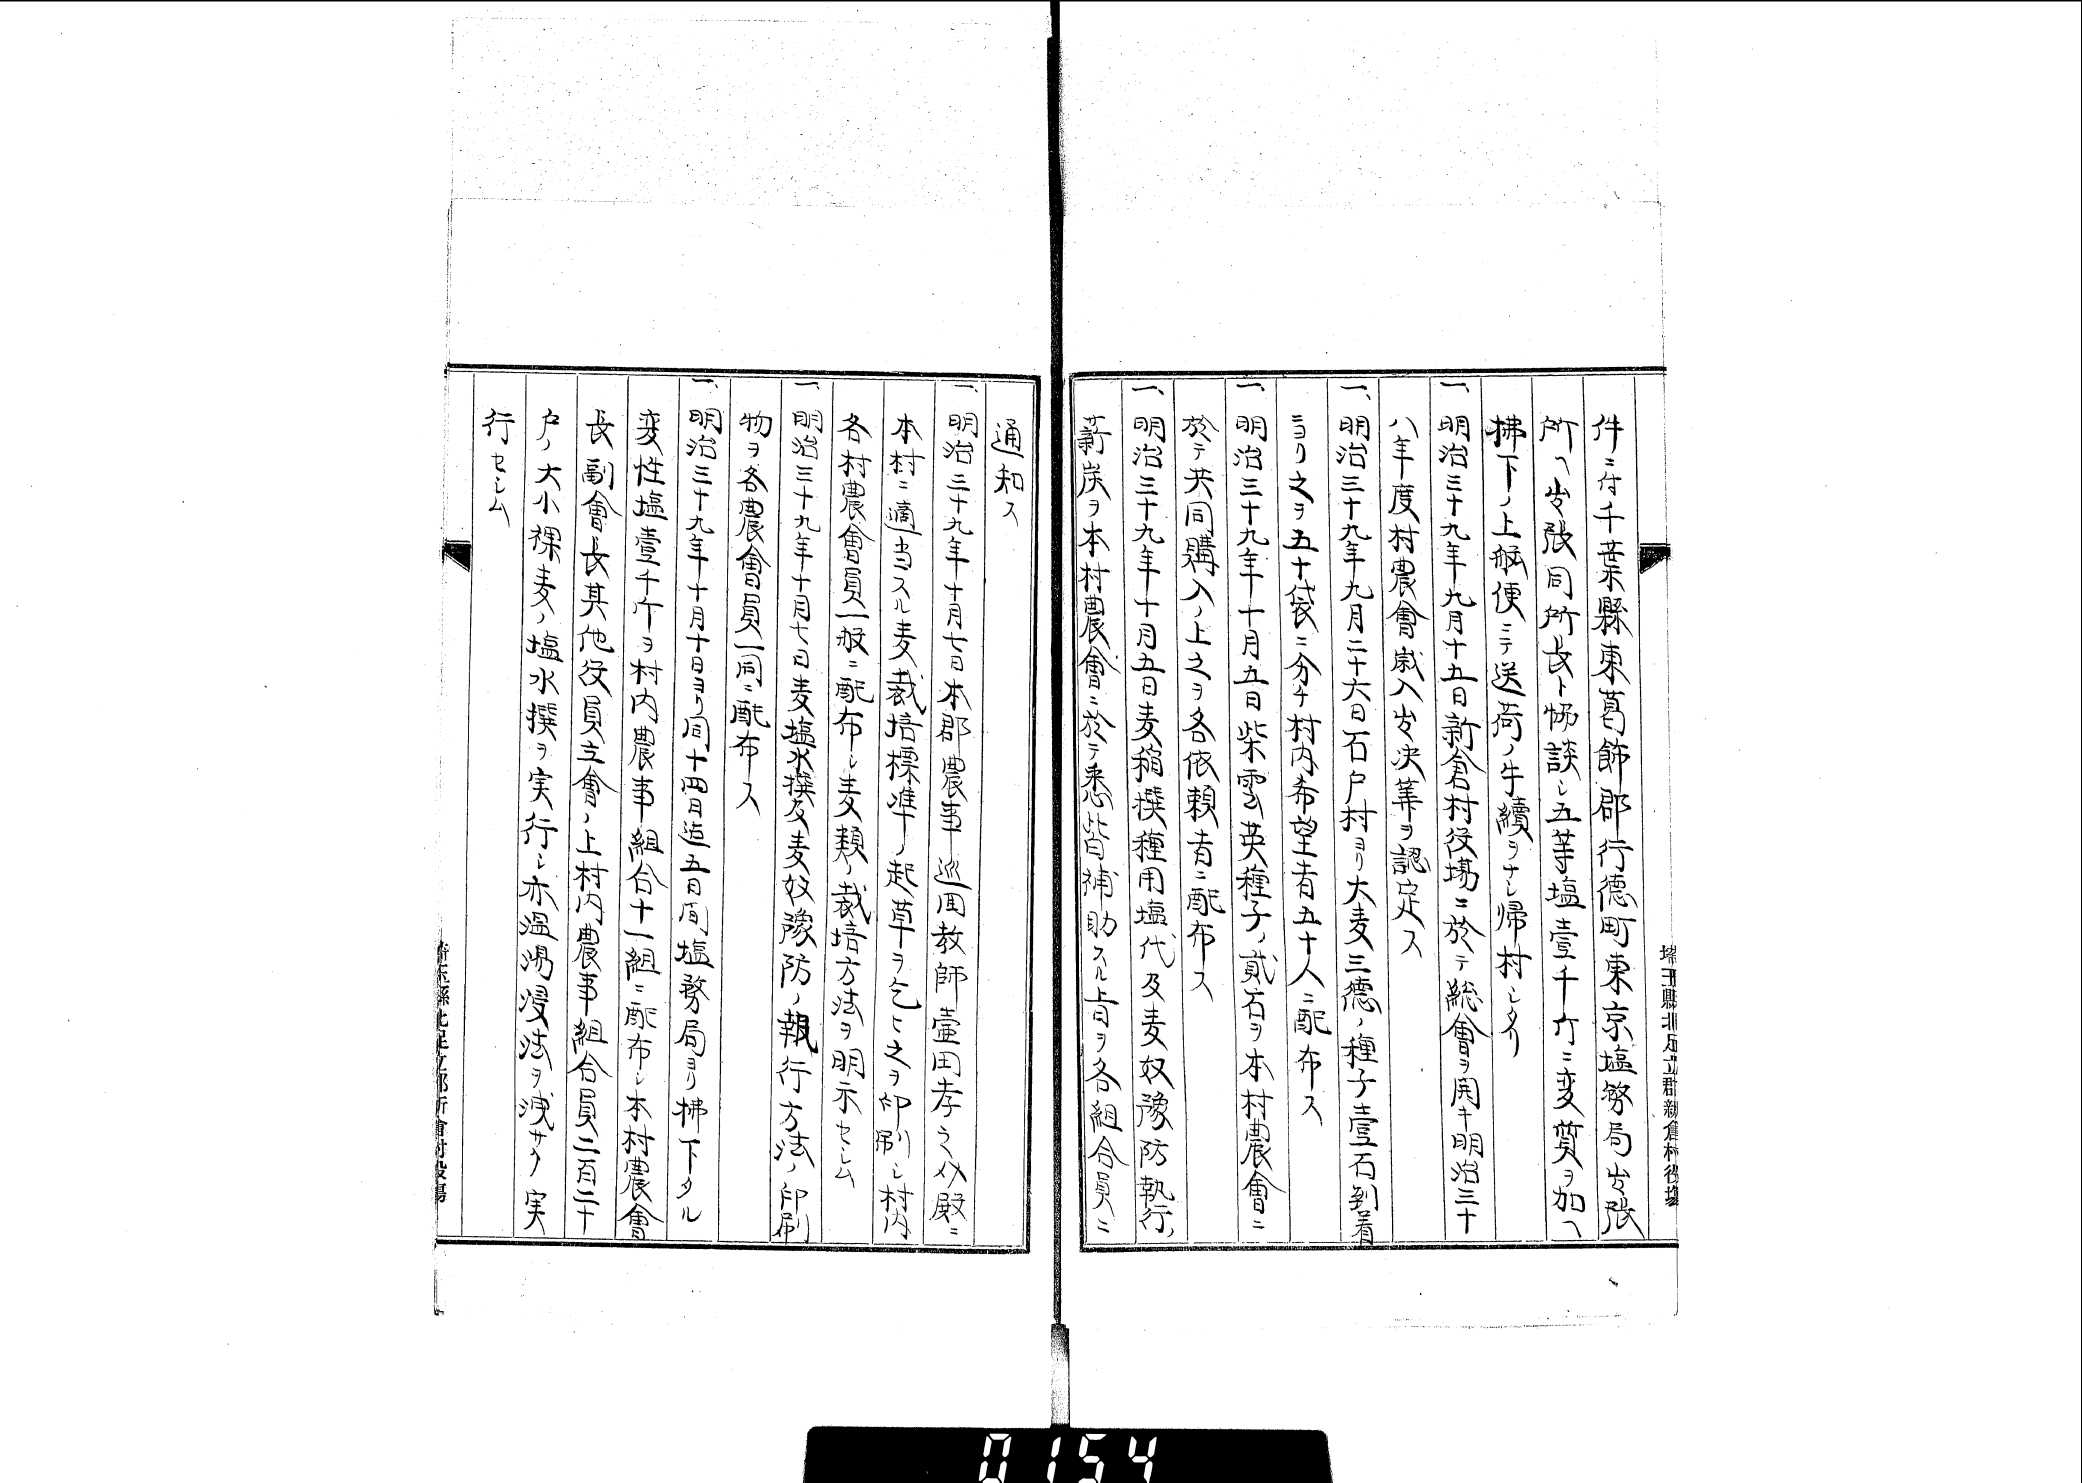 件ニ付千葉縣東葛飾郡行德町東京塩務局出張
所ヘ出張同所長ト協談シ五等塩壹千斤ニ変質ヲ加ヘ
拂下ノ上舩便ニテ送荷ノ手續ヲナシ帰村シタリ
一、明治三十九年九月十五日新倉村役場ニ於テ総會ヲ開キ明治三十
八年度村農會歳入出決算ヲ認定ス
一、明治三十九年九月二十六日石戸村ヨリ大麦三德ノ種子壹石到着
ニヨリ之ヲ五十袋ニ分チ村内希望者五十人ニ配布ス
一、明治三十九年十月五日柴雲英種子ノ貳石ヲ本村農會ニ
於テ共同購入ノ上之ヲ各依頼者ニ配布ス
一、明治三十九年十月五日麦稲撰種用塩代及麦奴豫防執行ノ
薪炭ヲ本村農會ニ於テ悉皆補助スル旨ヲ各組合員ニ
埼玉縣北足立郡新倉村役場
通知ス
一、明治三十九年十月七日本郡農事巡囬教師壷田孝之㕝殿ニ
本村ニ適当スル麦裁培標準ノ起草ヲ乞ヒ之ヲ印刷シ村内
各村農會員一般ニ配布シ麦類ノ裁培方法ヲ明示セシム
一、明治三十九年十月七日麦塩水撰及麦奴豫防ノ報行方法ノ印刷
物ヲ各農會員一同ニ配布ス
一、明治三十九年十月十日ヨリ同十四日迠五日間塩務局ヨリ拂下タル
変性塩壹千斤ヲ村内農事組合十一組ニ配布シ本村農會
長副會長其他役員立會ノ上村内農事組合員二百二十
戸ノ大小裸麦ノ塩水撰ヲ実行シ亦温湯浸法ヲ洩サク実
行セシム
埼玉縣北足立郡新倉村役場
0154